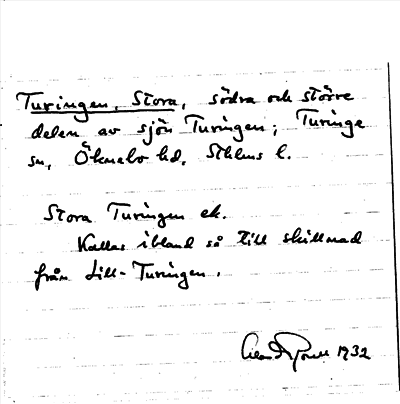 Turingen, Stora, södra och större
delen av sjön Turingen; Turinge
sn, Öknebo hd, Sthlms l.
Stora Turingen ek.
Kallas ibland så till skillnad
från Lill-Turingen.
1932